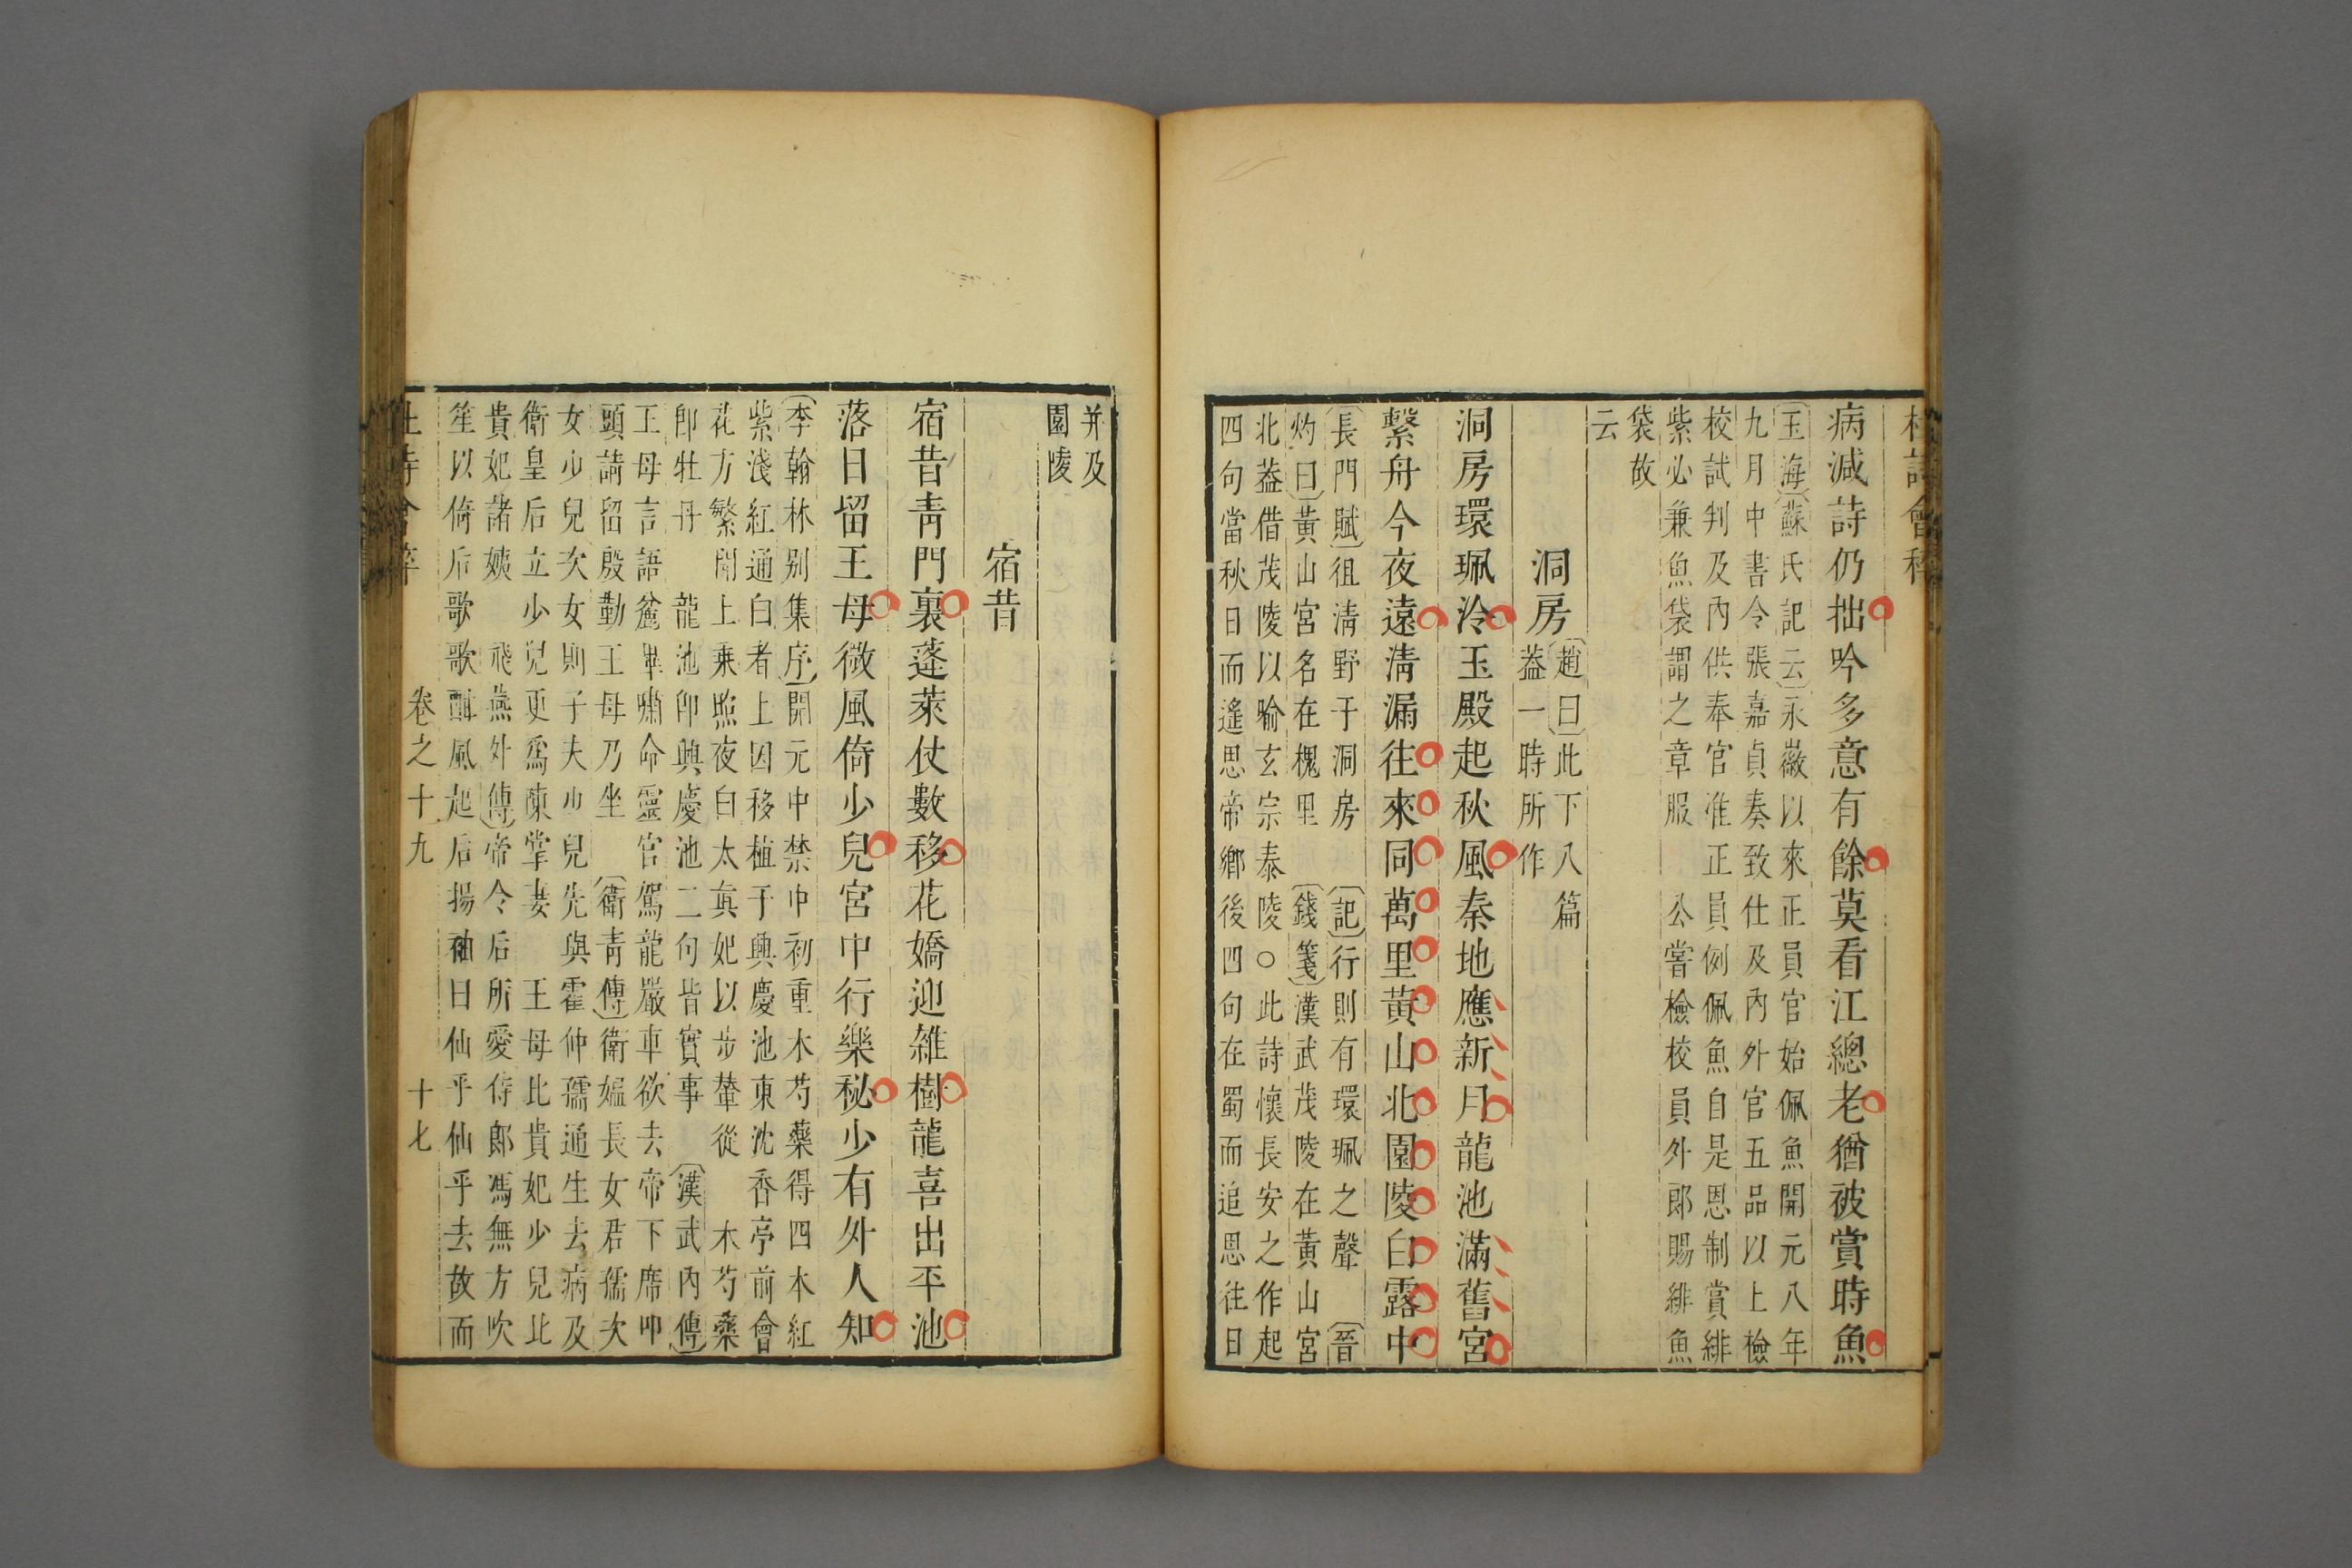 病減詩仍拙吟多意有餘莫看江總老猶被賞時魚
玉海蘇氏記云永徽以來正員官始佩魚開元八年
九月中書令張嘉貞奏致仕及內外官五品以上檢
校試判及內供奉官准正員例佩魚自是恩制賞緋
紫必兼魚袋謂之章服 公嘗檢校員外郎賜緋魚
袋故
云
洞房
趙曰此下八篇
葢一時所作
洞房環珮冷玉殿起秋風秦地應新月龍池滿舊宮
繫舟今夜遠清漏往來同萬里黃山北園陵白露中
長門賦徂淸野于洞房 記行則有環珮之聲 晉
灼曰黃山宮名在槐里 錢箋漢武茂陵在黃山宮
北葢借茂陵以喻玄宗泰陵○此詩懷長安之作起
四句當秋日而遙思帝鄉後四句在蜀而追思往日
并及
園陵
宿昔
宿昔靑門裏蓬萊仗數移花嬌迎雜樹龍喜出平池
落日留王母微風倚少兒宮中行樂秘少有外人知
李翰林别集序開元中禁中初重木芍藥得四本紅
紫淺紅通白者上因移植于興慶池東沈香亭前會
花方繁開上乘照夜白太眞妃以步輦從 木芍藥
卽牡丹 龍池卽興慶池二句皆實事 漢武內傳
王母言語旣畢嘯命靈官駕龍嚴車欲去帝下席叩
頭請留殷勤王母乃坐 衛青傳衛媼長女君孺次
女少兒次女則子夫少兒先與霍仲孺通生去病及
衛皇后立少兒更爲陳掌妻 王母比貴妃少兒比
貴妃諸姨 飛燕外傳帝令后所愛侍郎馮無方吹
笙以倚后歌歌酣風起后揚袖曰仙乎仙乎去故而
卷之十九 十七